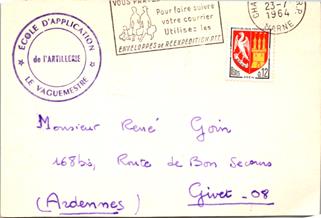 VOUS PART
Pour faire suivre
votre courrier
Utilisez les
ENVELOPPES de RÉEXPÉDITION PTT
23-7
1964
MARNE
ÉCOLE D'APPLICATION
de l'ARTILLERIE
LE VAGUEMESTRE
0,12
Monsieur René Goin
168bis, Route de Bon Secours
(Ardennes) Givet - 08